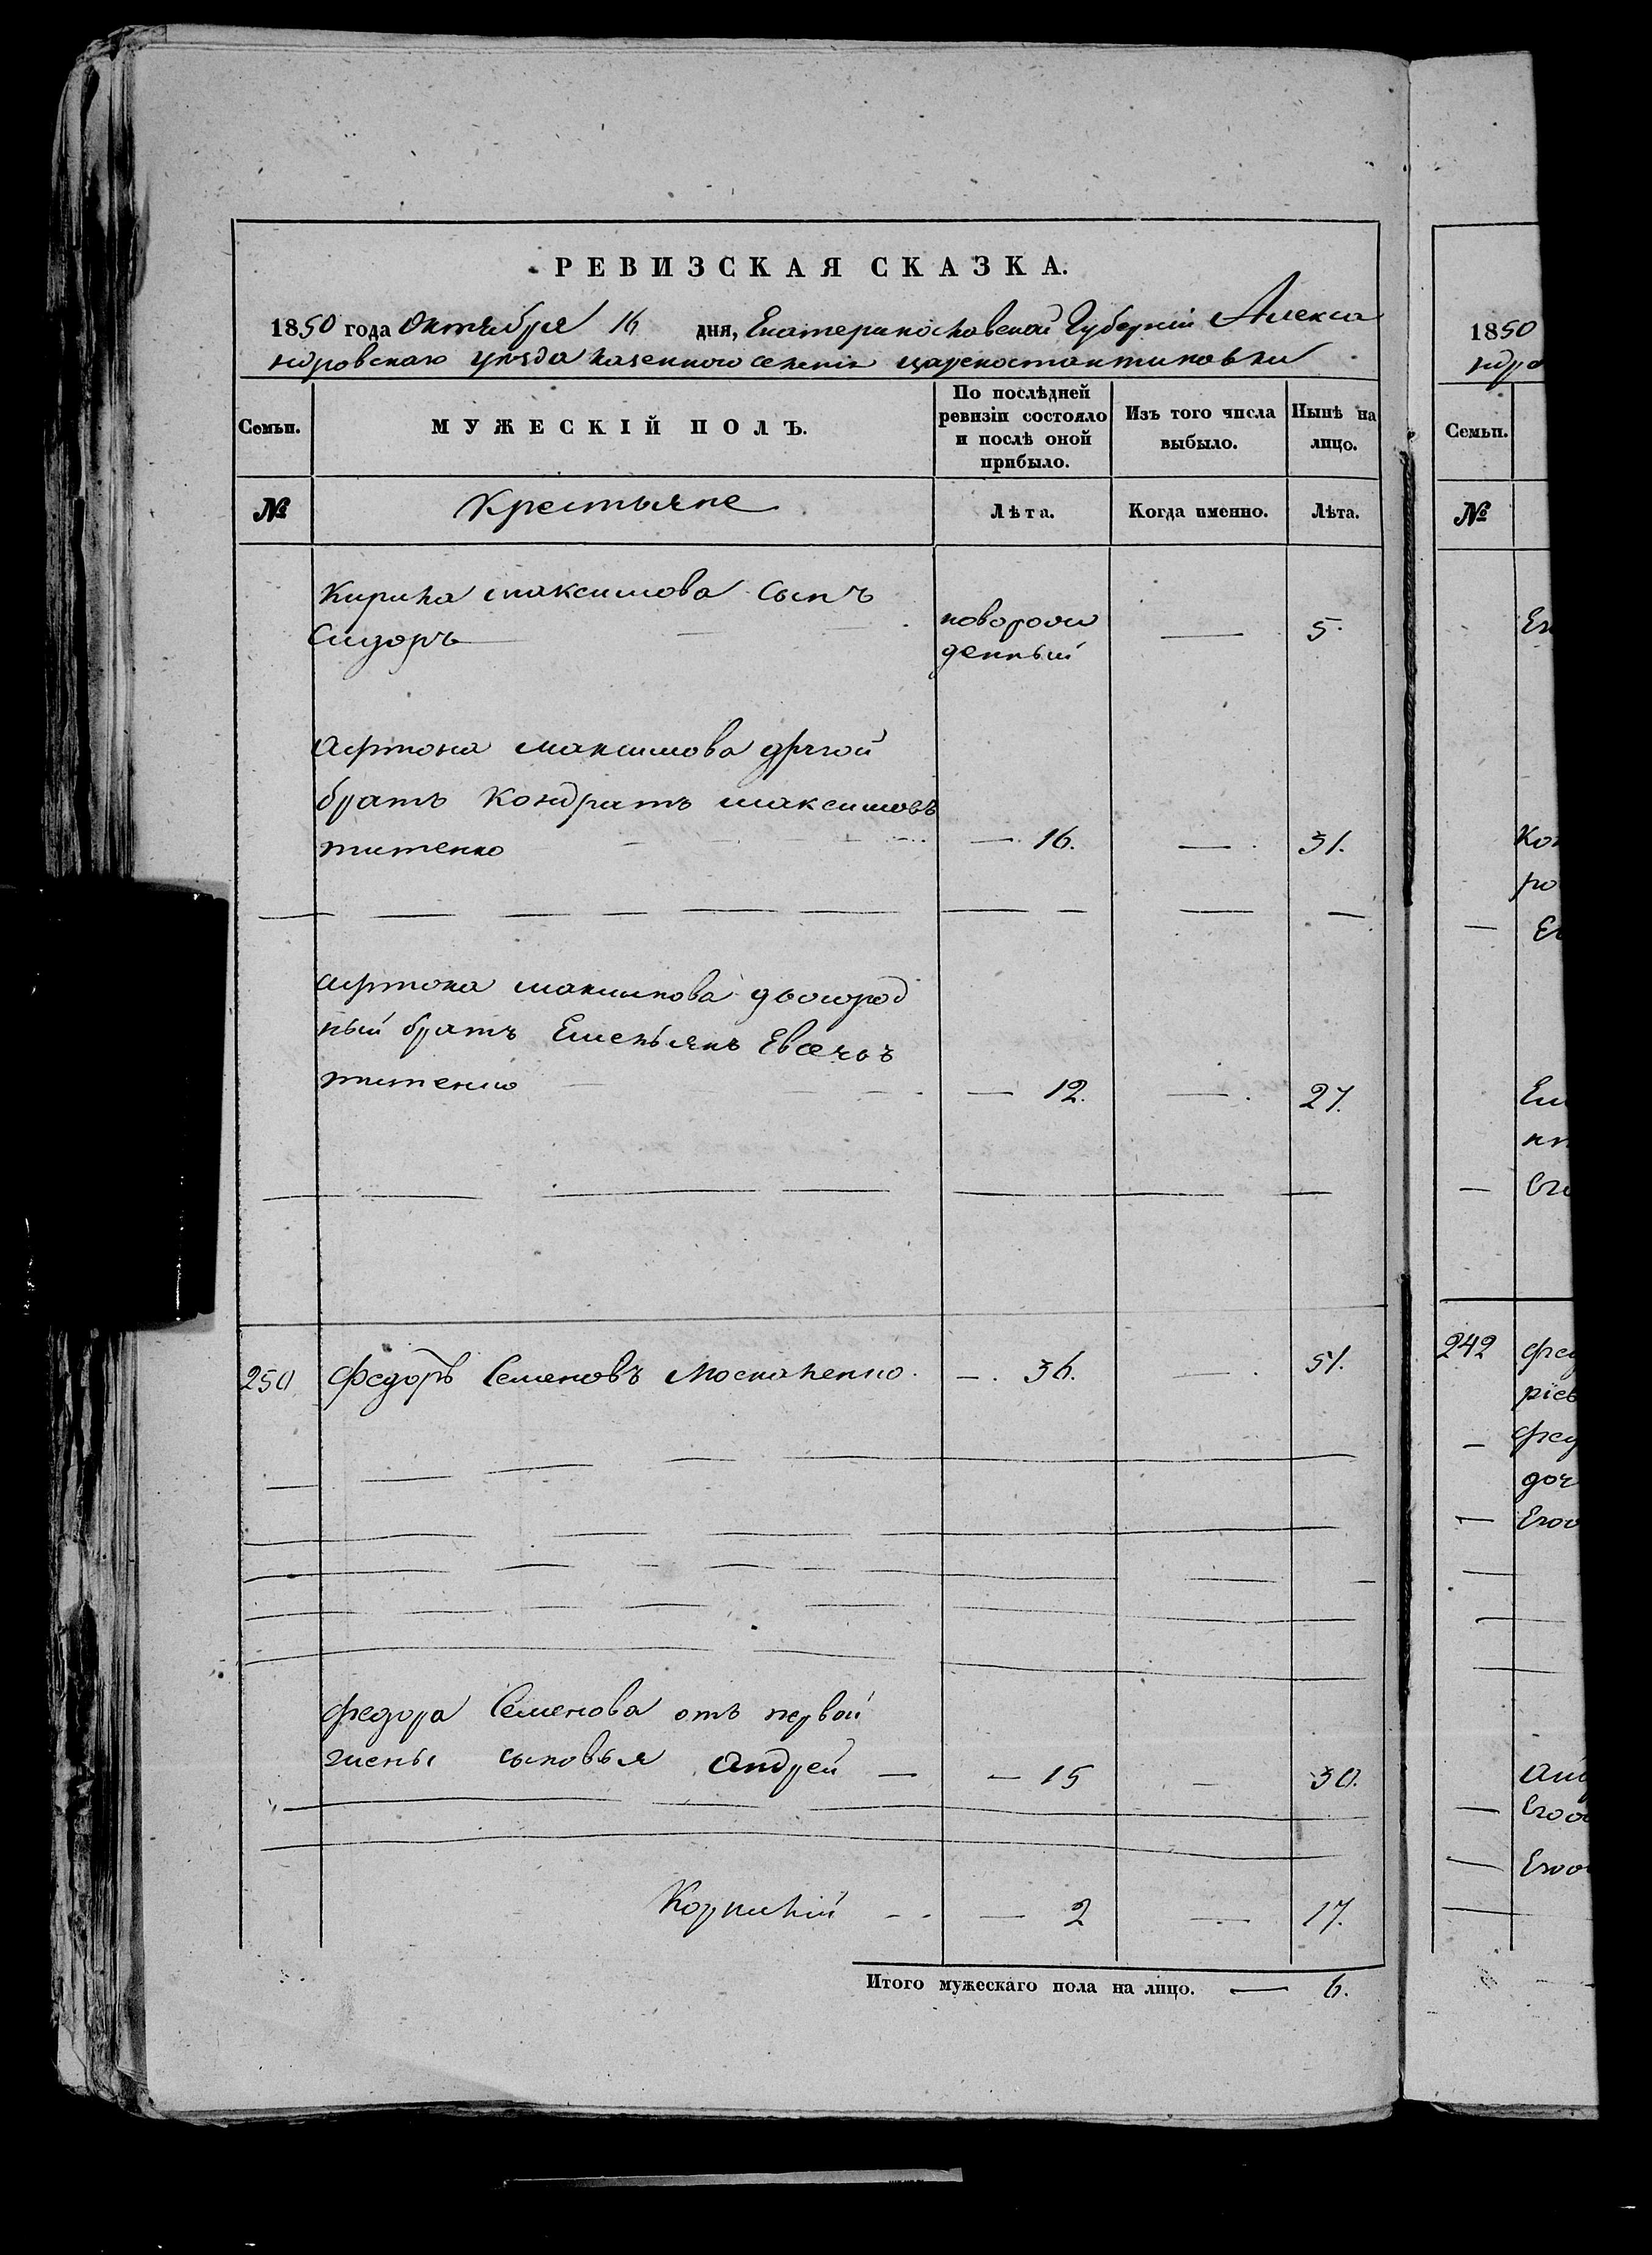 РЕВИЗСКАЯ СКАЗКА.
1850 года Октября 16 дня, Екатеринославской Губерніи Алекса
ндровскаго уезда казенного селенія Цареконстантиновки
Семьи. МУЖЕСКІЙ ПОЛЪ. По послѣдней ревизіи состояло и послѣ оной прибыло. Изъ того числа выбыло. Нынѣ на лицо.
№ Крестьяне Лѣта. Когда именно. Лѣта.
Кирила максимова сынъ
Сидоръ новорож
денный — 5.
максимова другой
братъ Кондратъ максимовъ
титенко — 16. — 31.
максимова двоюрод
ный братъ Емельянъ
титенко — 12. — 27.
250 Федоръ Семеновъ Москаленко. — 36. — 51.
Федора Семенова отъ первой
жены сыновья Андрей — — 15 — 30.
Корнилій — 2 — 17.
Итого мужескаго пола на лицо. — 6.
1850
ндро
Семьи.
№
Ко
242 Фед
ріев
Фед
доч